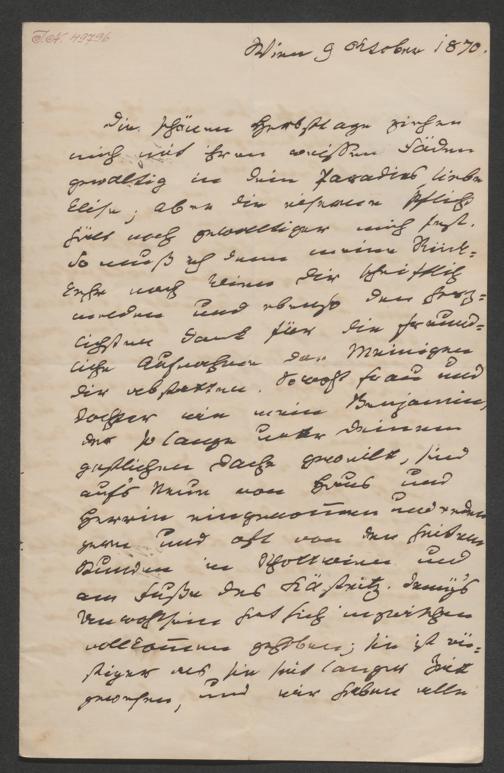 I.N. 49796
Wien 9 Oktober 1870.
Die schönen Herbsttage ziehen
mich mit ihren weissen Fäden
gewaltig in Dein Paradies liebe
Elise; aber die eiserne Pflicht
hält noch gewaltiger mich fest.
So muß ich denn meine Rück-
kehr nach Wien Dir schriftlich
melden und ebenso den herz-
lichsten Dank für die freund-
liche Aufnahme der Meinigen
Dir abstatten. Sowohl Frau und
Tochter wie mein Benjamin,
der so lange unter Deinem
gastlichen Dache geweilt, sind
aufs Neue von Haus und
Herrin eingenommen und reden
gern und oft von den heitern
Stunden in Schottwien und
am Fuße des
Unwohlsein hat sich inzwischen
vollkommen gehoben; sie ist rüs-
tiger als sie seit langer Zeit
gewesen, und wir haben alle